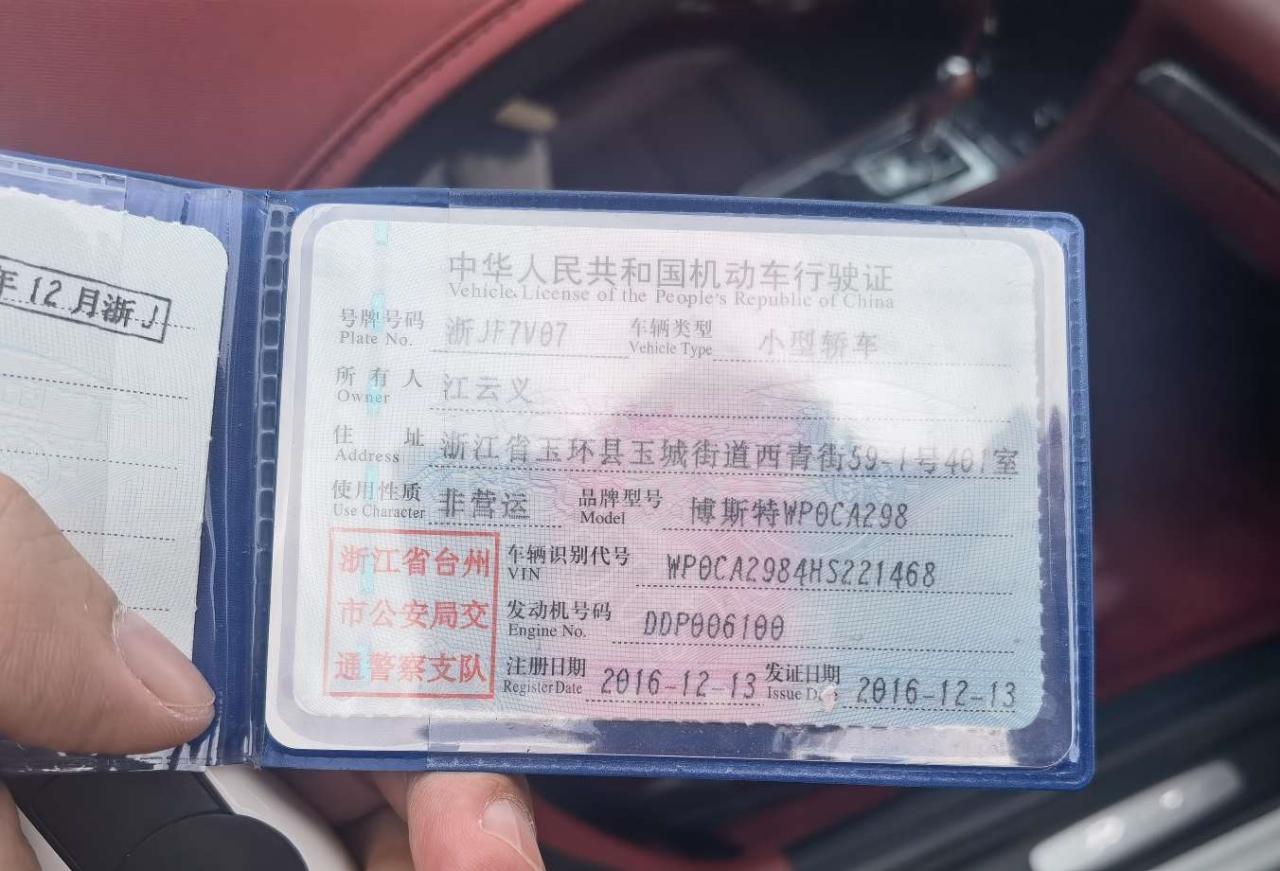 年12月浙J
中华人民共和国机动车行驶证
Vehicle License of the People's Republic of China
号牌号码 浙JF7V07 车辆类型 小型轿车
Plate No. Vehicle Type
所有人 江云义
Owner
住址 浙江省玉环县玉城街道西青街59-1号401室
Address
使用性质 非营运 品牌型号 博斯特WP0CA298
Use Character Model
浙江省台州
市公安局交
通警察支队
车辆识别代号 WP0CA2984HS221468
VIN
发动机号码 DDP006100
Engine No.
注册日期 2016-12-13 发证日期 2016-12-13
Register Date Issue